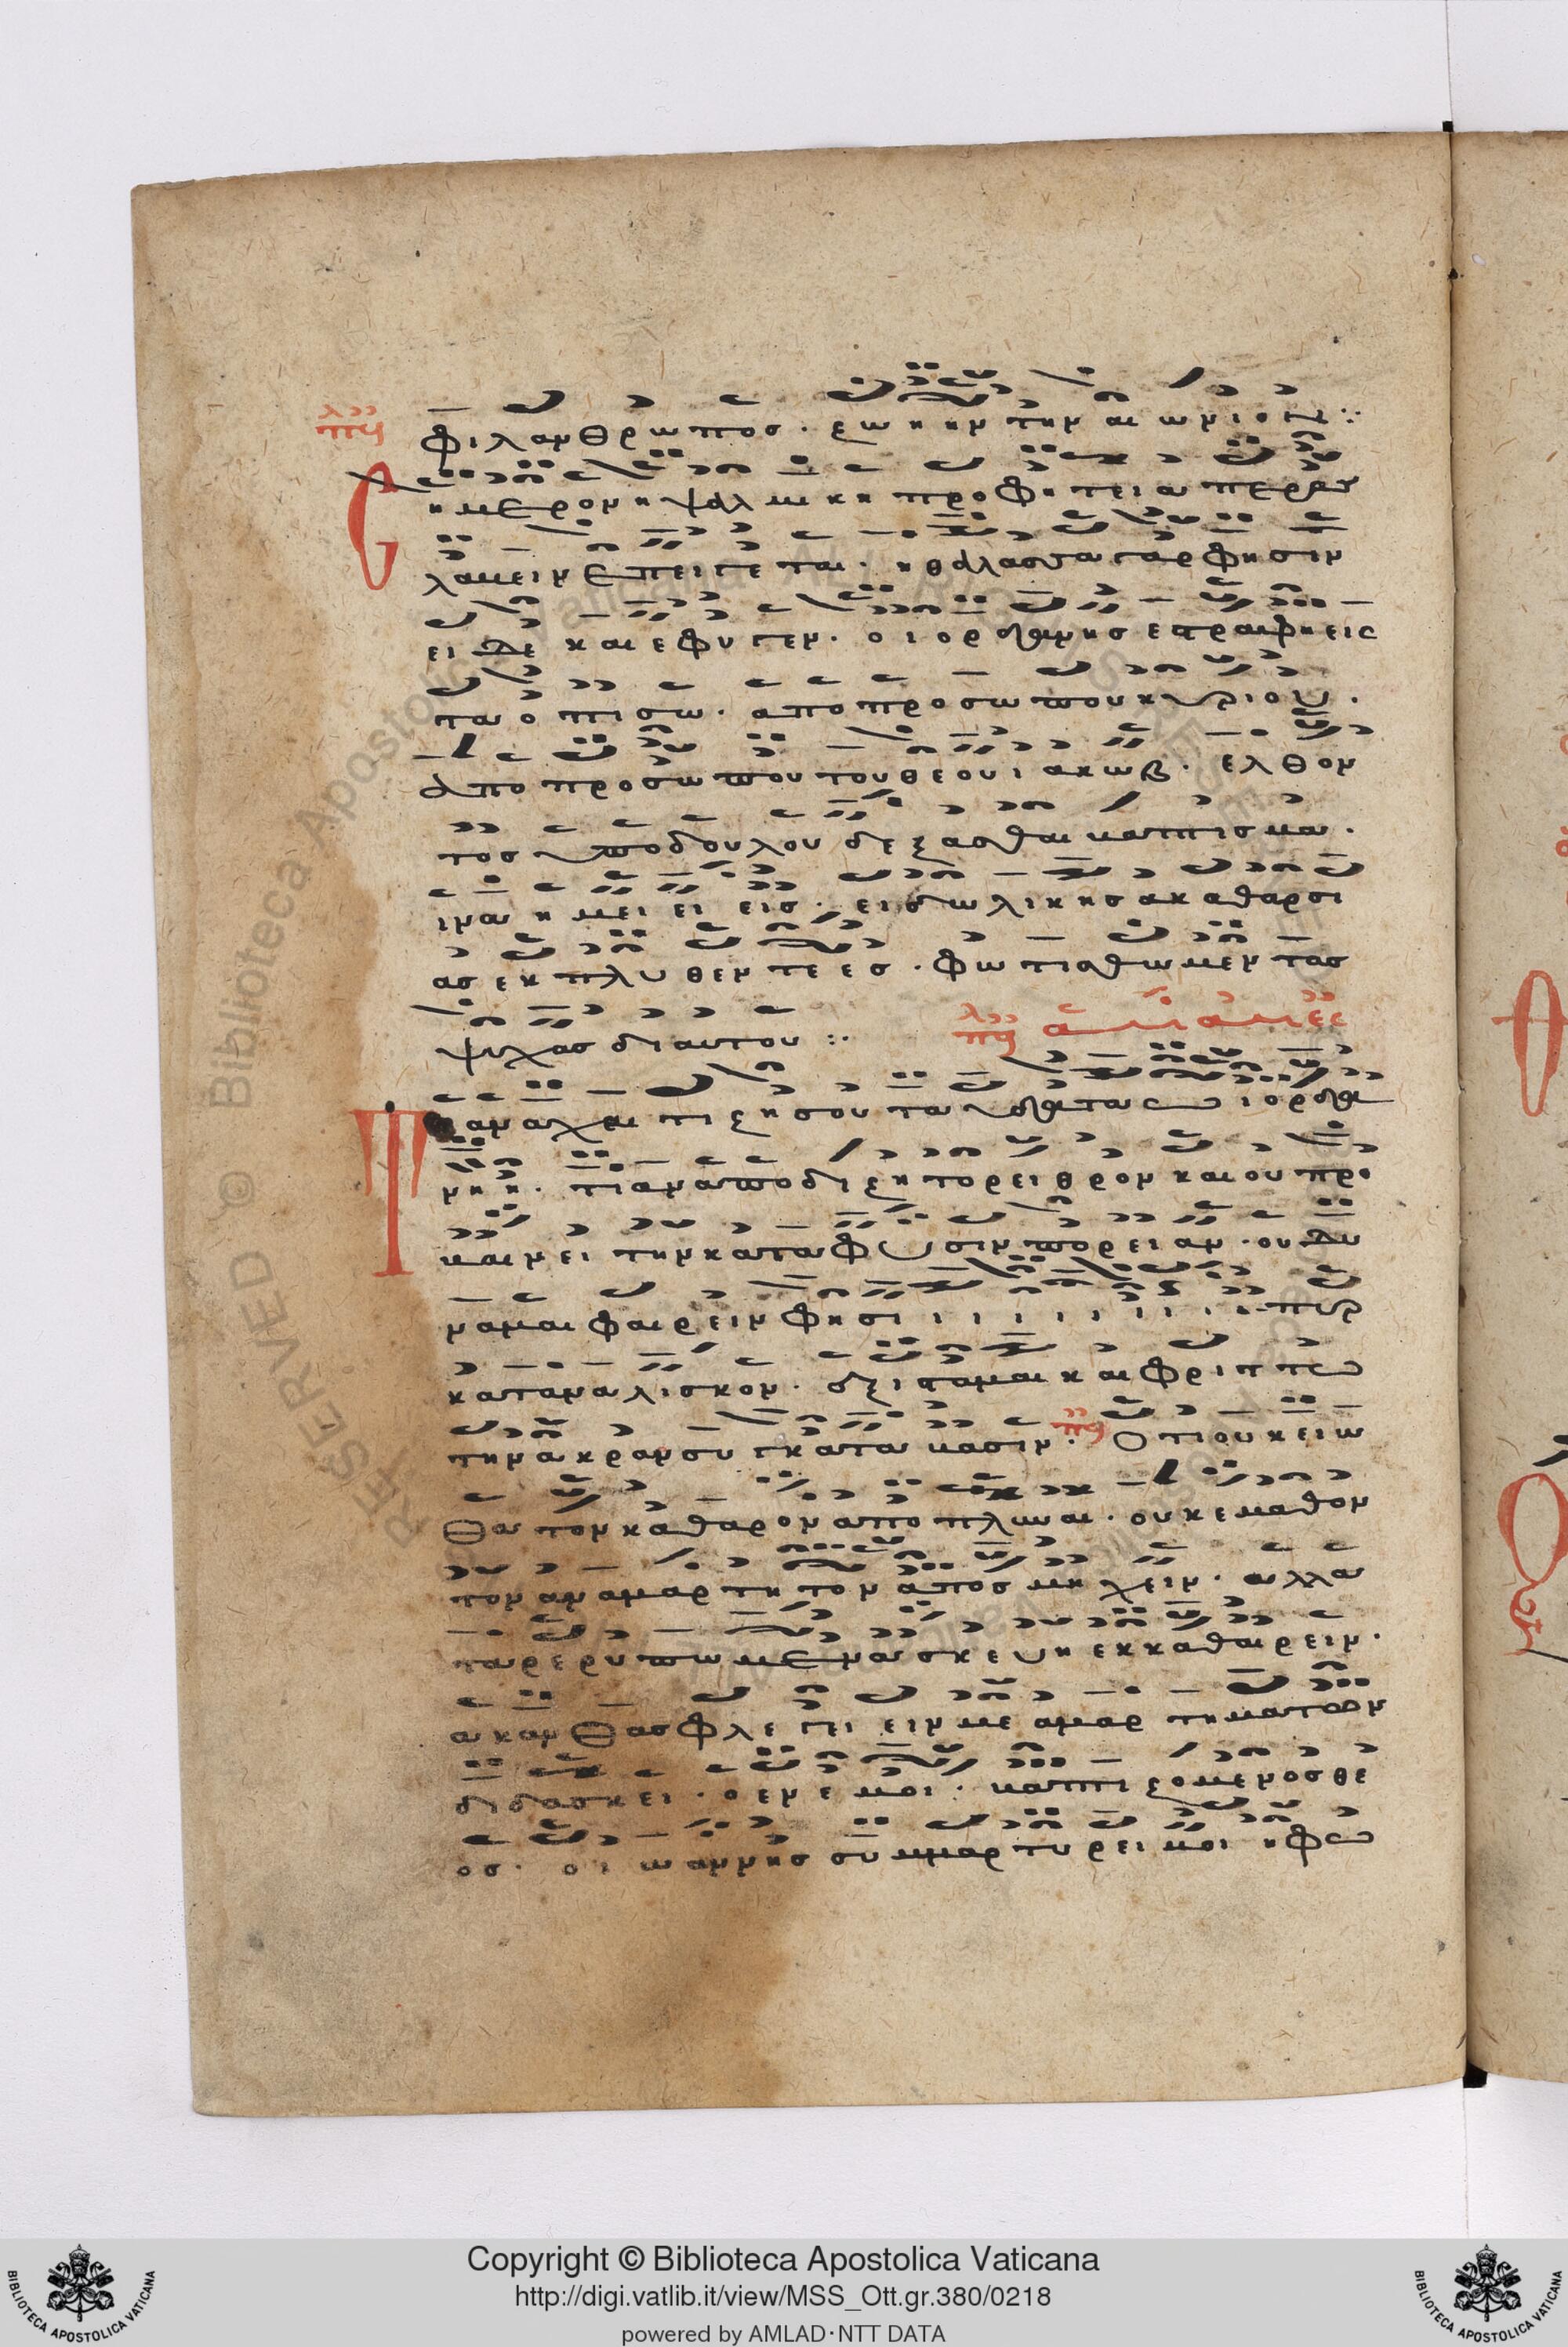 φιλανθρωπος · ζωηην την αιωνιοτε
Cημερον η ψαλμικη προφητεια περας
λαβειν επειγεται · η θαλασσα γαρ φησιν
ειδε και εφυγεν · ο ιορδανης εστραφη εις
τα οπισω · απο προσωπου κυριου ·
απο προσωπου του θεου ιακωβ · ελθον
τος υπο δουλου δεξασθαι βαπτισμα ·
ινα ημειειεις · ειδωλικης ακαθαρσι
ας εκπλυθεντεες · φωτισθωμεν τας
ψυχας δι αυτου :·
Τι αναχαιτιζη σου τα υδατα ω ιορδα
νηη · τι αναποδιζη το ρειθρον και ου προ
βαινει την κατα φυσιν πορειαν · ου δυ
ναμαι φαιρειν φησι ι ι ι ι ι ι ι ι · πυρ
καταναλισκον · εξισταμαι και φριττω
την ακραν συγκαταβασιν · Οτι ουκ ειω
θα τον καθαρον αποπλυναι · ουκ εμαθον
τον αναμαρτητον αποσμηχειν · αλλα
τα ρερυπωμενα σκευη εκκαθαιρειν ·
ακανθας φλεγειειν με αμαρτηματων
διδασκει · ο εν εμοι · βαπτιζομενος θε
ος · ο ιωαννης συμμαρτυρει μοι η φω
Copyright © Biblioteca Apostolica Vaticana
http://digi.vatlib.it/view/MSS_Ott.gr.380/0218
powered by AMLAD·NTT DATA
BIBLIOTECA APOSTOLICA VATICANA
BIBLIOTECA APOSTOLICA VATICANA